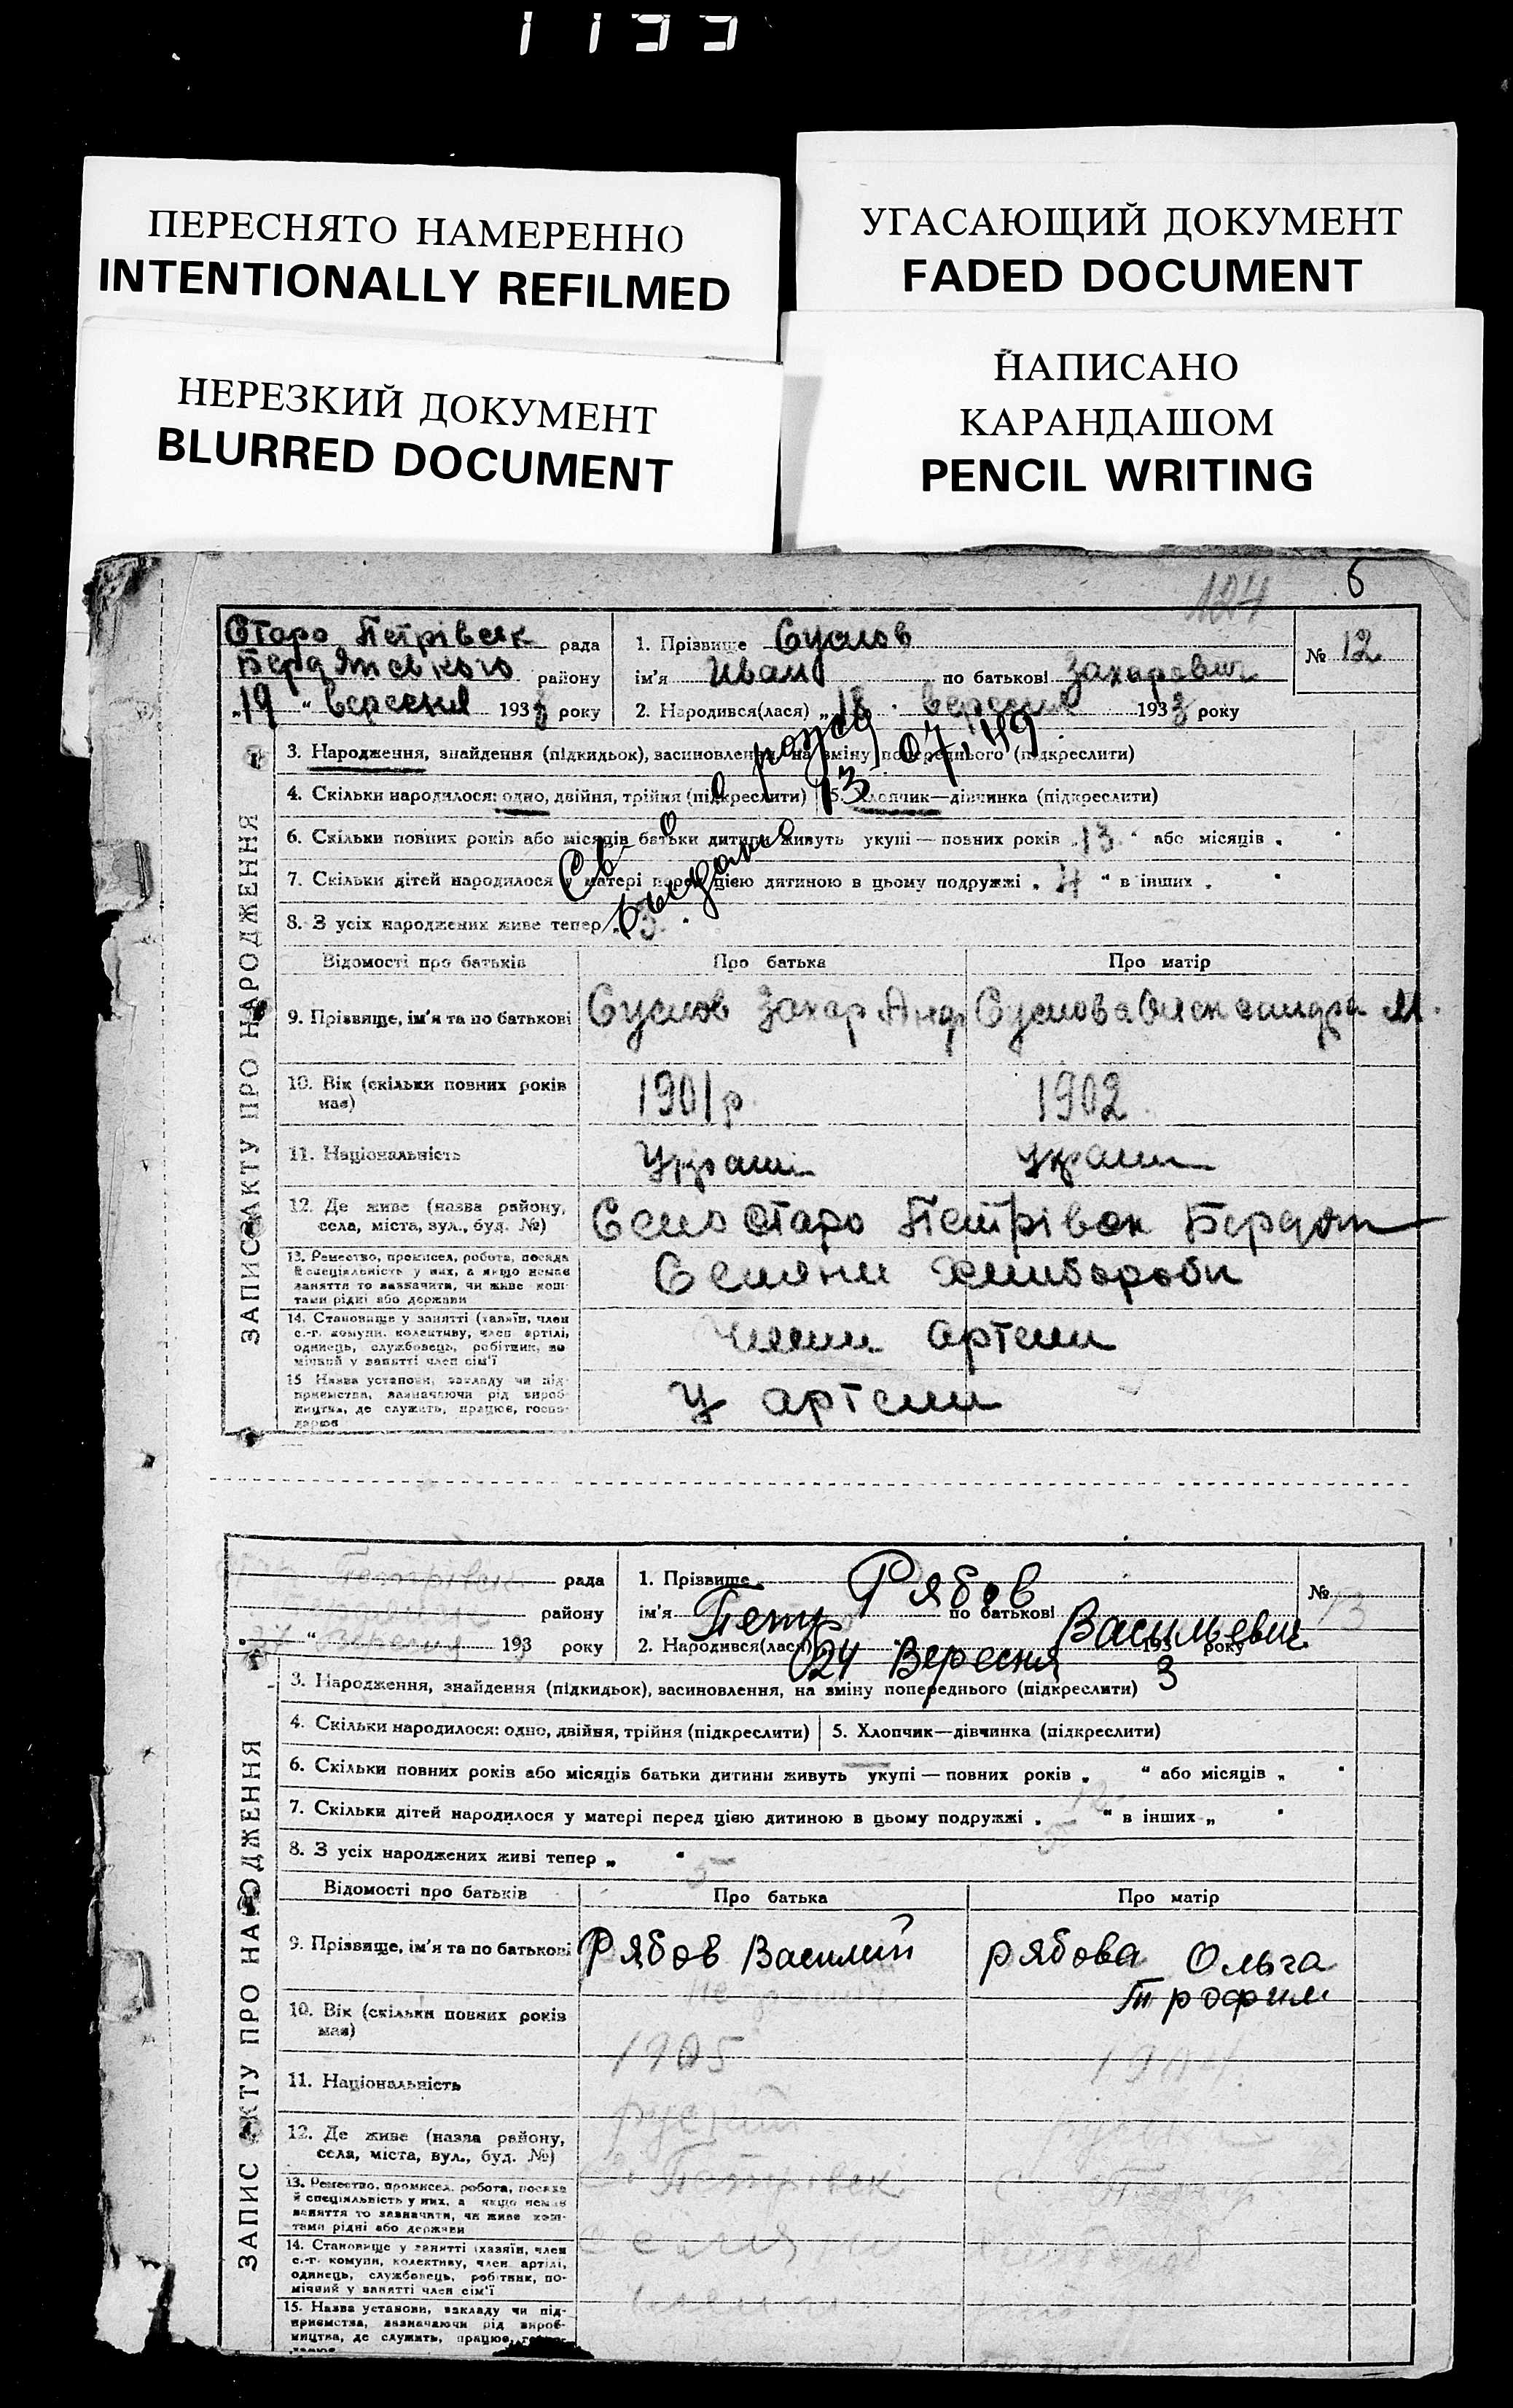 1133
ПЕРЕСНЯТО НАМЕРЕННО
INTENTIONALLY REFILMED
УГАСАЮЩИЙ ДОКУМЕНТ
FADED DOCUMENT
НЕРЕЗКИЙ ДОКУМЕНТ
BLURRED DOCUMENT
НАПИСАНО
КАРАНДАШОМ
PENCIL WRITING
124 6
ЗАПИС АКТУ ПРО НАРОДЖЕННЯ
Старо Петрівськ рада
Бердянського району
„19 “ вересня 1933 року
1. Прізвище Суслов
ім'я Иван по батькові Захарович
2. Народився(лася) „18 вересня 1933 року
№ 12
3. Народження, знайдення (підкидьок), засиновлення, на зміну попереднього (підкреслити)
4. Скільки народилося: одно, двійня, трійня (підкреслити) 5. Хлопчик—дівчинка (підкреслити)
6. Скільки повних років або місяців батьки дитини живуть укупі — повних років „13 “ або місяців „
7. Скільки дітей народилося у матері перед цією дитиною в цьому подружжі „ 4 “ в інших „
8. З усіх народжених живе тепер „ 3
Св о рожд
выдано
13 07.49
Відомості про батьків Про батька Про матір
9. Прізвище, ім'я та по батькові Суслов Захар Андр Суслова Олександра М.
10. Вік (скільки повних років має) 1901 р. 1902
11. Національність Україні україн
12. Де живе (назва району, села, міста, вул., буд. №) Село Старо Петрівск Бердян
13. Ремество, промисел, робота, посада й спеціяльність у них, а якщо немає заняття то зазначити, чи живе коштами рідні або держави Селяни Хлибороби
14. Становище у занятті (хазяїн, член с.-г. комуни, колективу, член артілі, одинець, службовець, робітник, помічний у занятті член сім'ї Члени артели
15 Назва установи, закладу чи підприємства, зазначаючи рід виробництва, де служить, працює, господарює У артели
ЗАПИС АКТУ ПРО НАРОДЖЕННЯ
Петрівск рада
району
24 “ Вересня 193 3 року
1. Прізвище Рябов
ім'я Петр по батькові Васильевич
2. Народився(лася) 24 Вересня 193 3 року
№ 13
3. Народження, знайдення (підкидьок), засиновлення, на зміну попереднього (підкреслити)
4. Скільки народилося: одно, двійня, трійня (підкреслити) 5. Хлопчик—дівчинка (підкреслити)
6. Скільки повних років або місяців батьки дитини живуть укупі — повних років „ 12 “ або місяців „
7. Скільки дітей народилося у матері перед цією дитиною в цьому подружжі „ 5 “ в інших „
8. З усіх народжених живі тепер „ 5 “
Відомості про батьків Про батька Про матір
9. Прізвище, ім'я та по батькові Рябов Василий Рябова Ольга
Трофим
10. Вік (скільки повних років має) 1905 1904
11. Національність руский
12. Де живе (назва району, села, міста, вул., буд. №) С. Петрівск С.
13. Ремество, промисел, робота, посада й спеціяльність у них, а якщо немає заняття то зазначити, чи живе коштами рідні або держави селяни
14. Становище у занятті (хазяїн, член с.-г. комуни, колективу, член артілі, одинець, службовець, робітник, помічний у занятті член сім'ї
15. Назва установи, закладу чи підприємства, зазначаючи рід виробництва, де служить, працює,